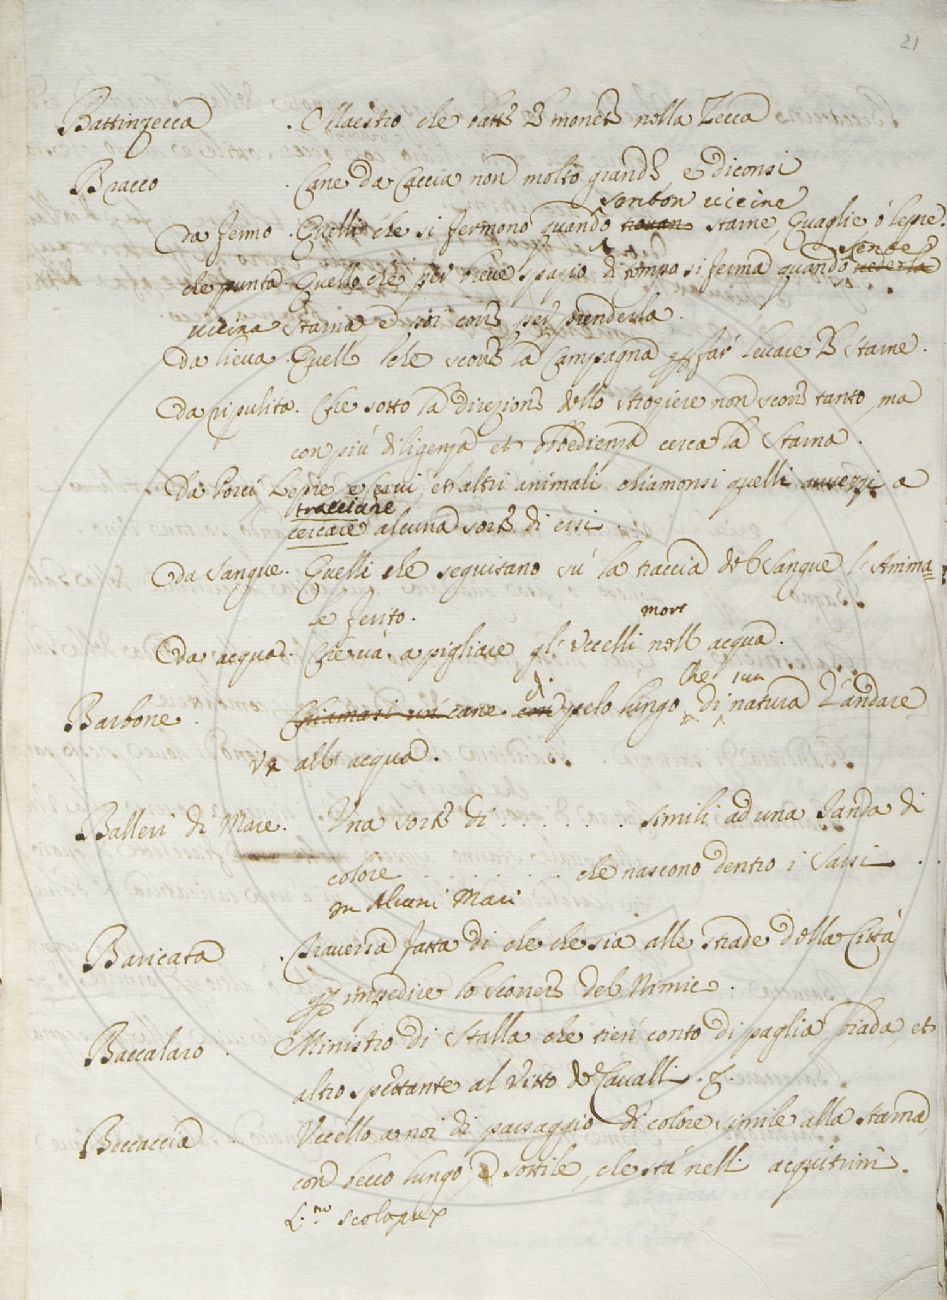 21
Battinzecca . Maestro che batte le monete nella Zecca
Bracco . Cane da Caccia non molto grande e diconsi
senton vicine
da fermo . Quelli che si fermono quando trovan starne, Quaglie ò lepre.
sente
che punta Quello che per breve spazio di tempo si ferma quando vede la
vicina starna e poi corre per prenderla.
da lieva . Quelli che scorre la Campagna per far levare le starne.
da ripulita . Che sotto la direzione dello strogiere non scorre tanto, ma
con più diligenza et obbedienza cerca la starna.
da Porci Lepre e cervi, et altri animali chiamonsi quelli avvezzi a
tracciare
cercare alcuna sorte di essi
da Sangue . Quelli che seguitano sù la traccia del Sangue l'Anima=
le ferito.
morti
da acqua . Che và a pigliare gl' Uccelli nell acqua.
d. che
Barbone . Chiamasi un cane con pelo lungo di natura d'andare
all' acqua.
Balleri di Mare . Una sorte di . . . . . . simili ad una Panda di
colore . . . . . . che nascono dentro i Sassi . .
in Alcuni Mari
Baricata . Traversa fatta di che che sia alle strade della Città
per impedire lo scorrere del Nimic .
Baccalaro . Ministro di Stalla che tien conto di paglia, biada, et
altro spettante al vitto de Cavalli .
Beccaccia . Uccello a noi di passaggio di colore simile alla starna,
con becco lungo, e sottile, che stà nelli acquitrini.
L.no scolopax